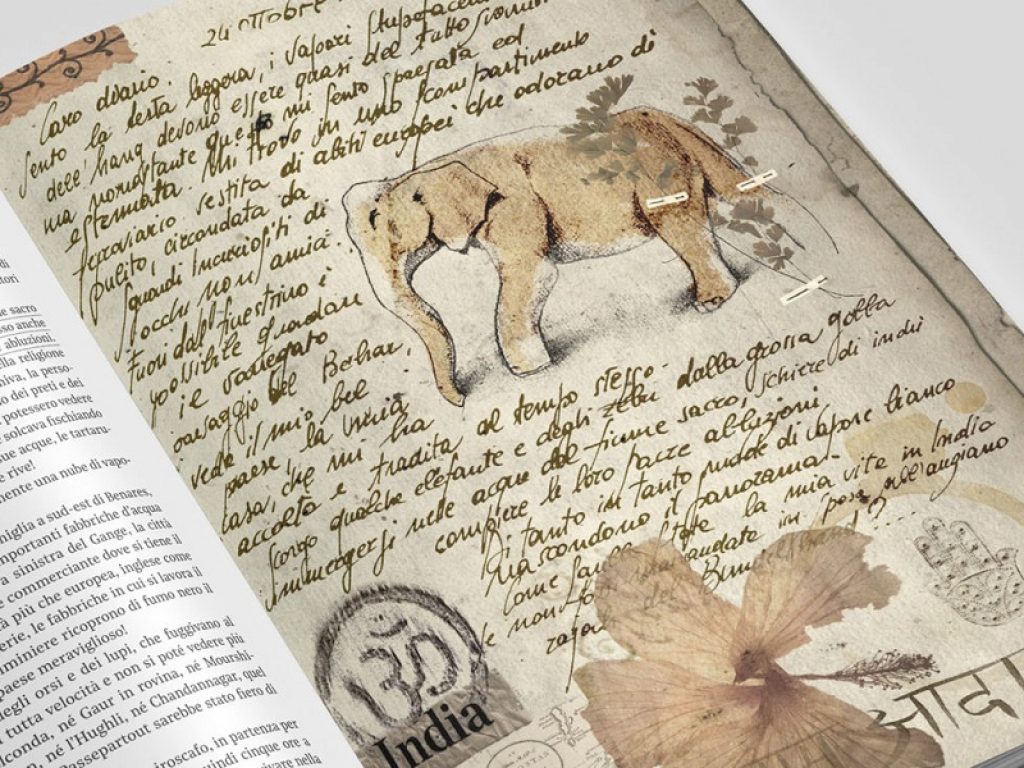 di
tori
e sacro
sso anche
abluzioni.
lla religione
hiva, la perso-
so dei preti e dei
potessero vedere
solcava fischiando
sue acque, le tartaru-
e rive!
mente una nube di vapo-
niglia a sud-est di Benares,
mportanti fabbriche d'acqua
a sinistra del Gange, la città
e commerciante dove si tiene il
tà più che europea, inglese come
erie, le fabbriche in cui si lavora il
iminiere ricoprono di fumo nero il
paese meraviglioso!
egli orsi e dei lupi, che fuggivano al
tutta velocità e non si poté vedere più
lconda, né Gaur in rovina, né Mourshi-
no, né l'Hughli, né Chandannagar, quel
Passepartout sarebbe stato fiero di
iroscafo, in partenza per
quindi cinque ore a
24 ottobre
Caro diario.
Sento la testa leggera, i vapori stupefacen
dell'hang devono essere quasi del tutto svaniti
ma nonostante questo mi sento spaesata ed
esterrefatta. Mi trovo in uno scompartimento
ferroviario vestita di abiti europei che odorano di
pulito, circondata da
sguardi incuriositi di
occhi non amici.
Fuori dal finestrino è
possibile guardare
il variegato
paesaggio del Behar,
vedo il mio bel
paese, la mia
casa, che mi ha
accolta e tradita al tempo stesso.
Scorgo qualche elefante e degli zebù dalla grossa gobba
immergersi nelle acque del fiume sacro, schiere di indù
compiere le loro pacze abluzioni.
Di tanto in tanto nuvole di vapore bianco
nascondono il panorama.
Come sarebbe stata la mia vita in India
se non fossi andata in sposa all'anziano
del Bundelkund?
ॐ
India